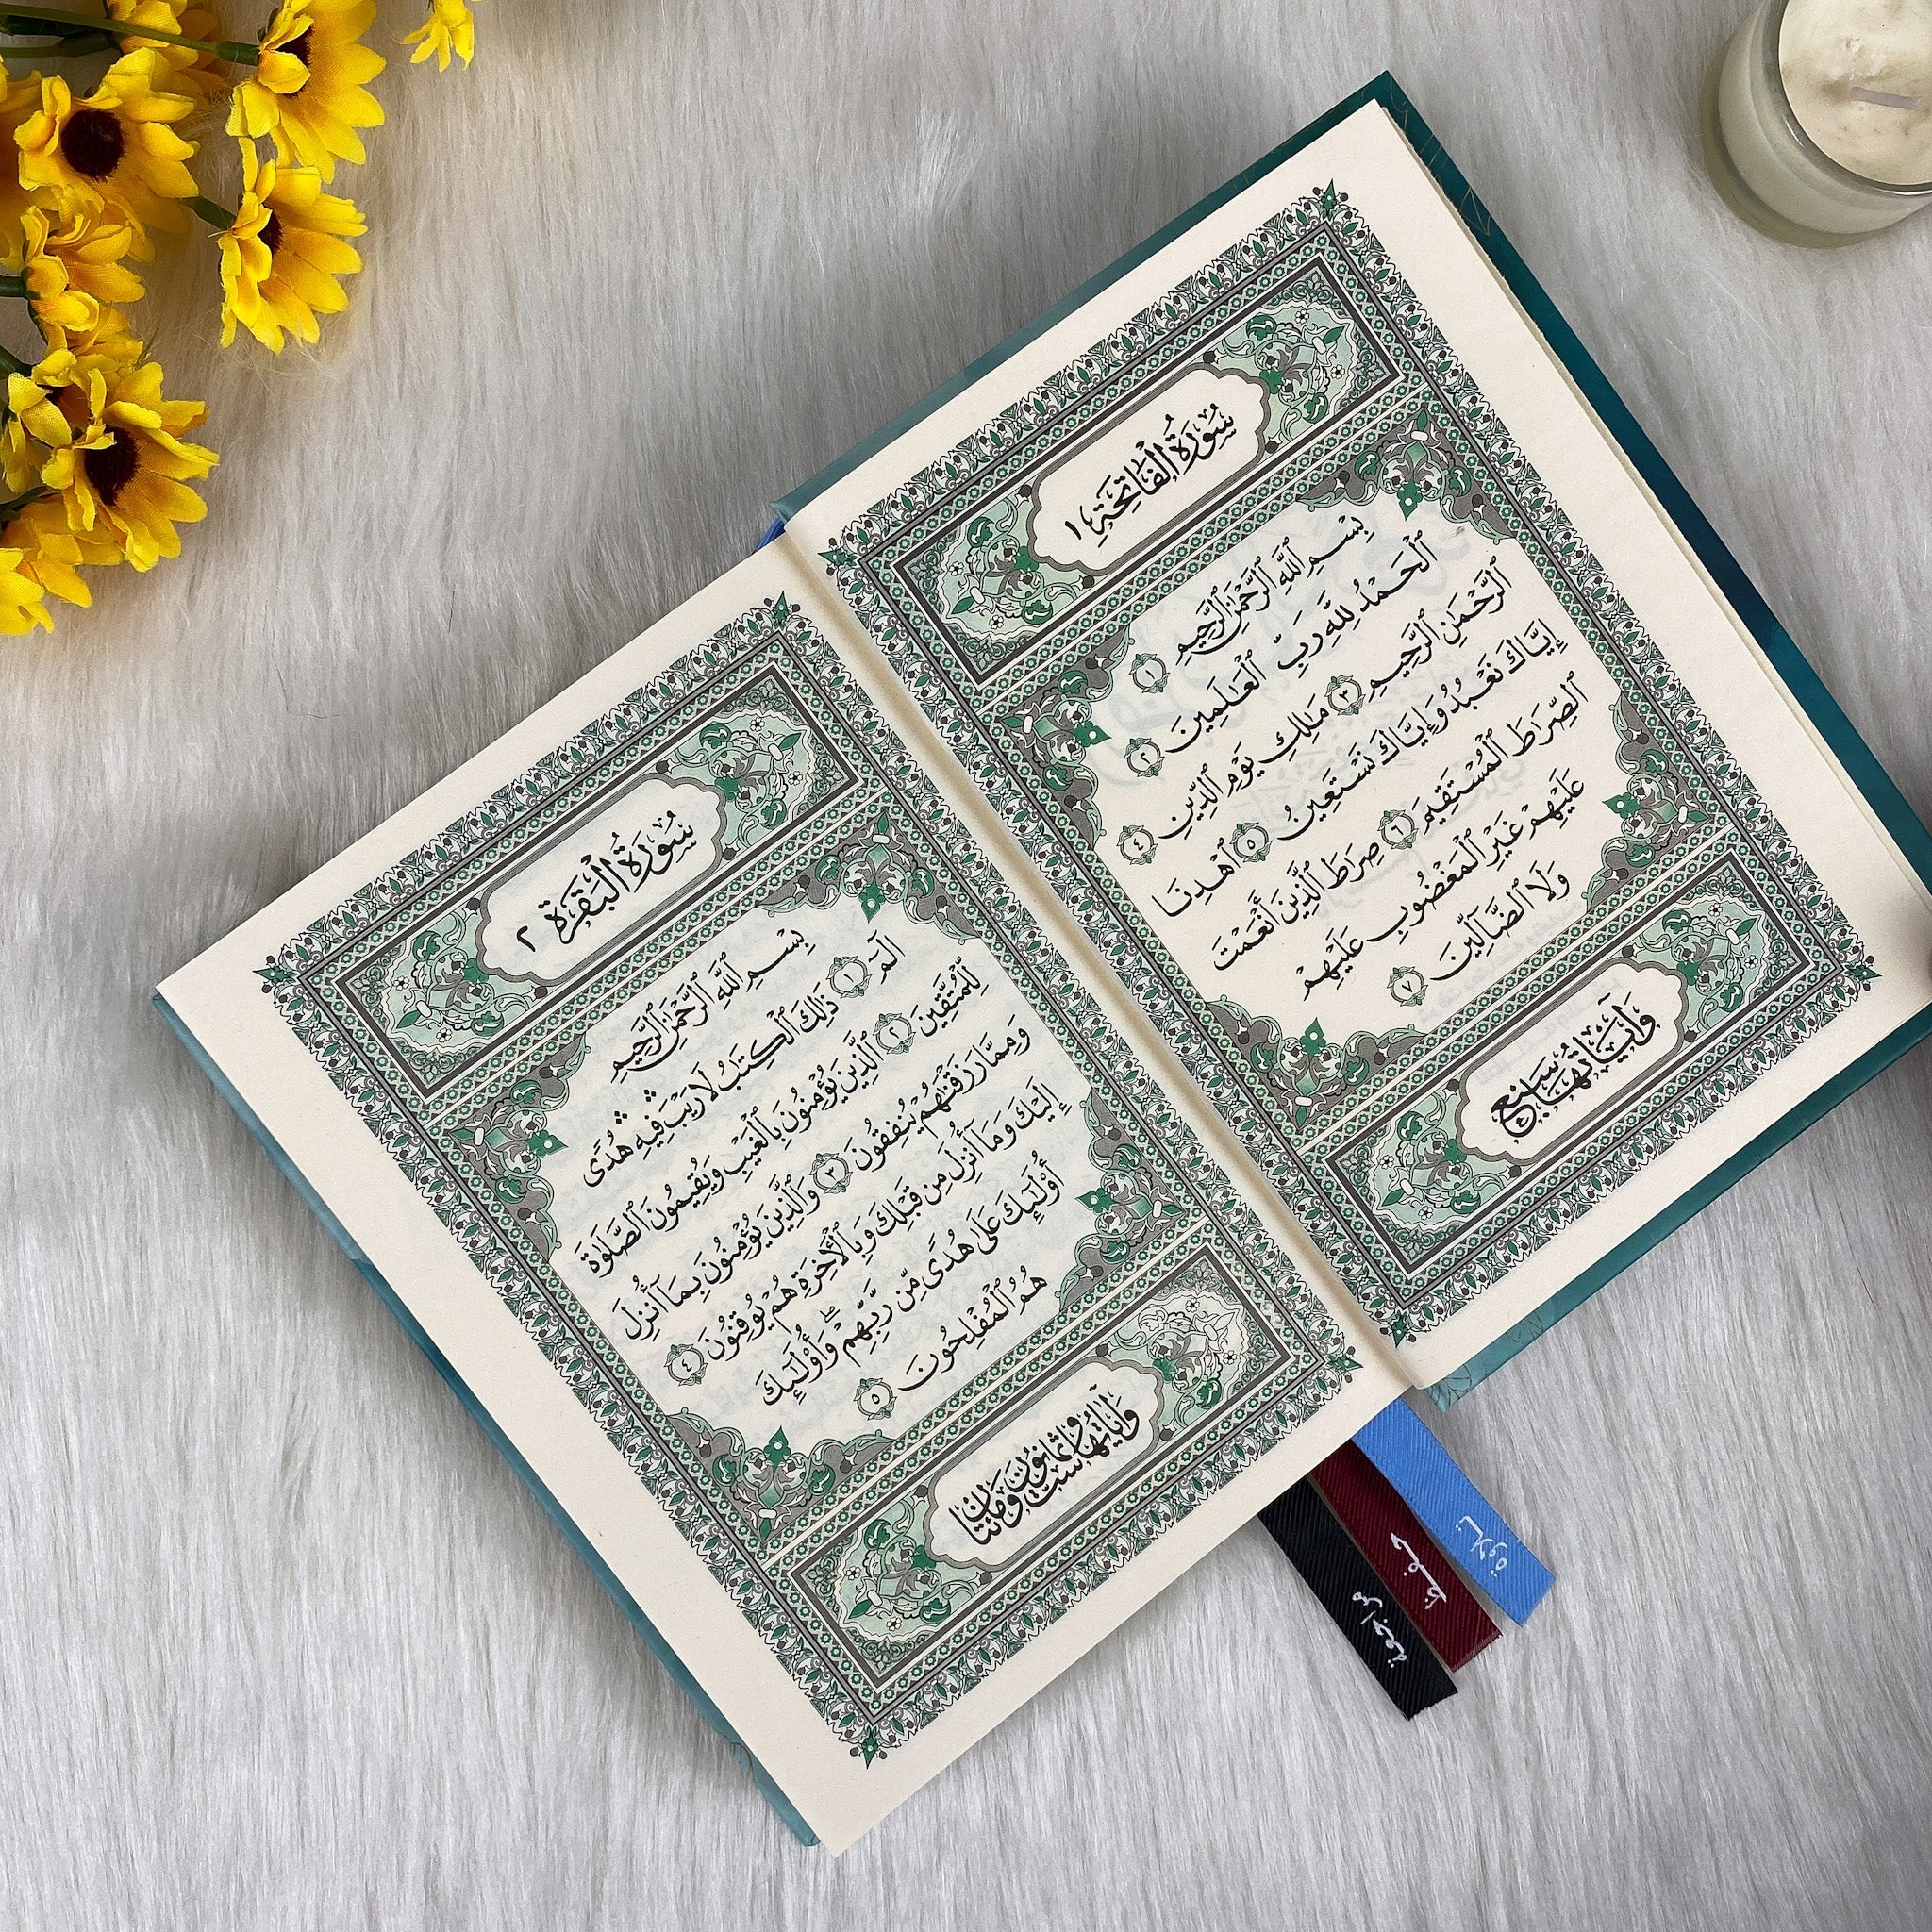 سُورَةُ الْفَاتِحَةِ ١
بِسْمِ ٱللَّهِ ٱلرَّحْمَٰنِ ٱلرَّحِيمِ ١
ٱلْحَمْدُ لِلَّهِ رَبِّ ٱلْعَٰلَمِينَ ٢
ٱلرَّحْمَٰنِ ٱلرَّحِيمِ ٣ مَٰلِكِ يَوْمِ ٱلدِّينِ ٤
إِيَّاكَ نَعْبُدُ وَإِيَّاكَ نَسْتَعِينُ ٥ ٱهْدِنَا
ٱلصِّرَٰطَ ٱلْمُسْتَقِيمَ ٦ صِرَٰطَ ٱلَّذِينَ أَنْعَمْتَ
عَلَيْهِمْ غَيْرِ ٱلْمَغْضُوبِ عَلَيْهِمْ
وَلَا ٱلضَّآلِّينَ ٧
وَآيَاتُهَا سَبْعٌ
سُورَةُ الْبَقَرَةِ ٢
بِسْمِ ٱللَّهِ ٱلرَّحْمَٰنِ ٱلرَّحِيمِ
الٓمٓ ١ ذَٰلِكَ ٱلْكِتَٰبُ لَا رَيْبَ ۛ فِيهِ ۛ هُدًى
لِّلْمُتَّقِينَ ٢ ٱلَّذِينَ يُؤْمِنُونَ بِٱلْغَيْبِ وَيُقِيمُونَ ٱلصَّلَوٰةَ
وَمِمَّا رَزَقْنَٰهُمْ يُنفِقُونَ ٣ وَٱلَّذِينَ يُؤْمِنُونَ بِمَآ أُنزِلَ
إِلَيْكَ وَمَآ أُنزِلَ مِن قَبْلِكَ وَبِٱلْأٓخِرَةِ هُمْ يُوقِنُونَ ٤
أُو۟لَٰٓئِكَ عَلَىٰ هُدًى مِّن رَّبِّهِمْ ۖ وَأُو۟لَٰٓئِكَ
هُمُ ٱلْمُفْلِحُونَ ٥
وَآيَاتُهَا سِتٌّ وَثَمَانُونَ وَمِائَتَانِ
مراجعة
حفظ
تلاوة